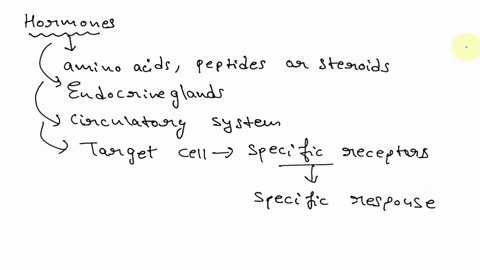 Hormones
amino acids, peptides or steroids
Endocrine glands
Circulatory system
Target cell → specific receptors
specific response